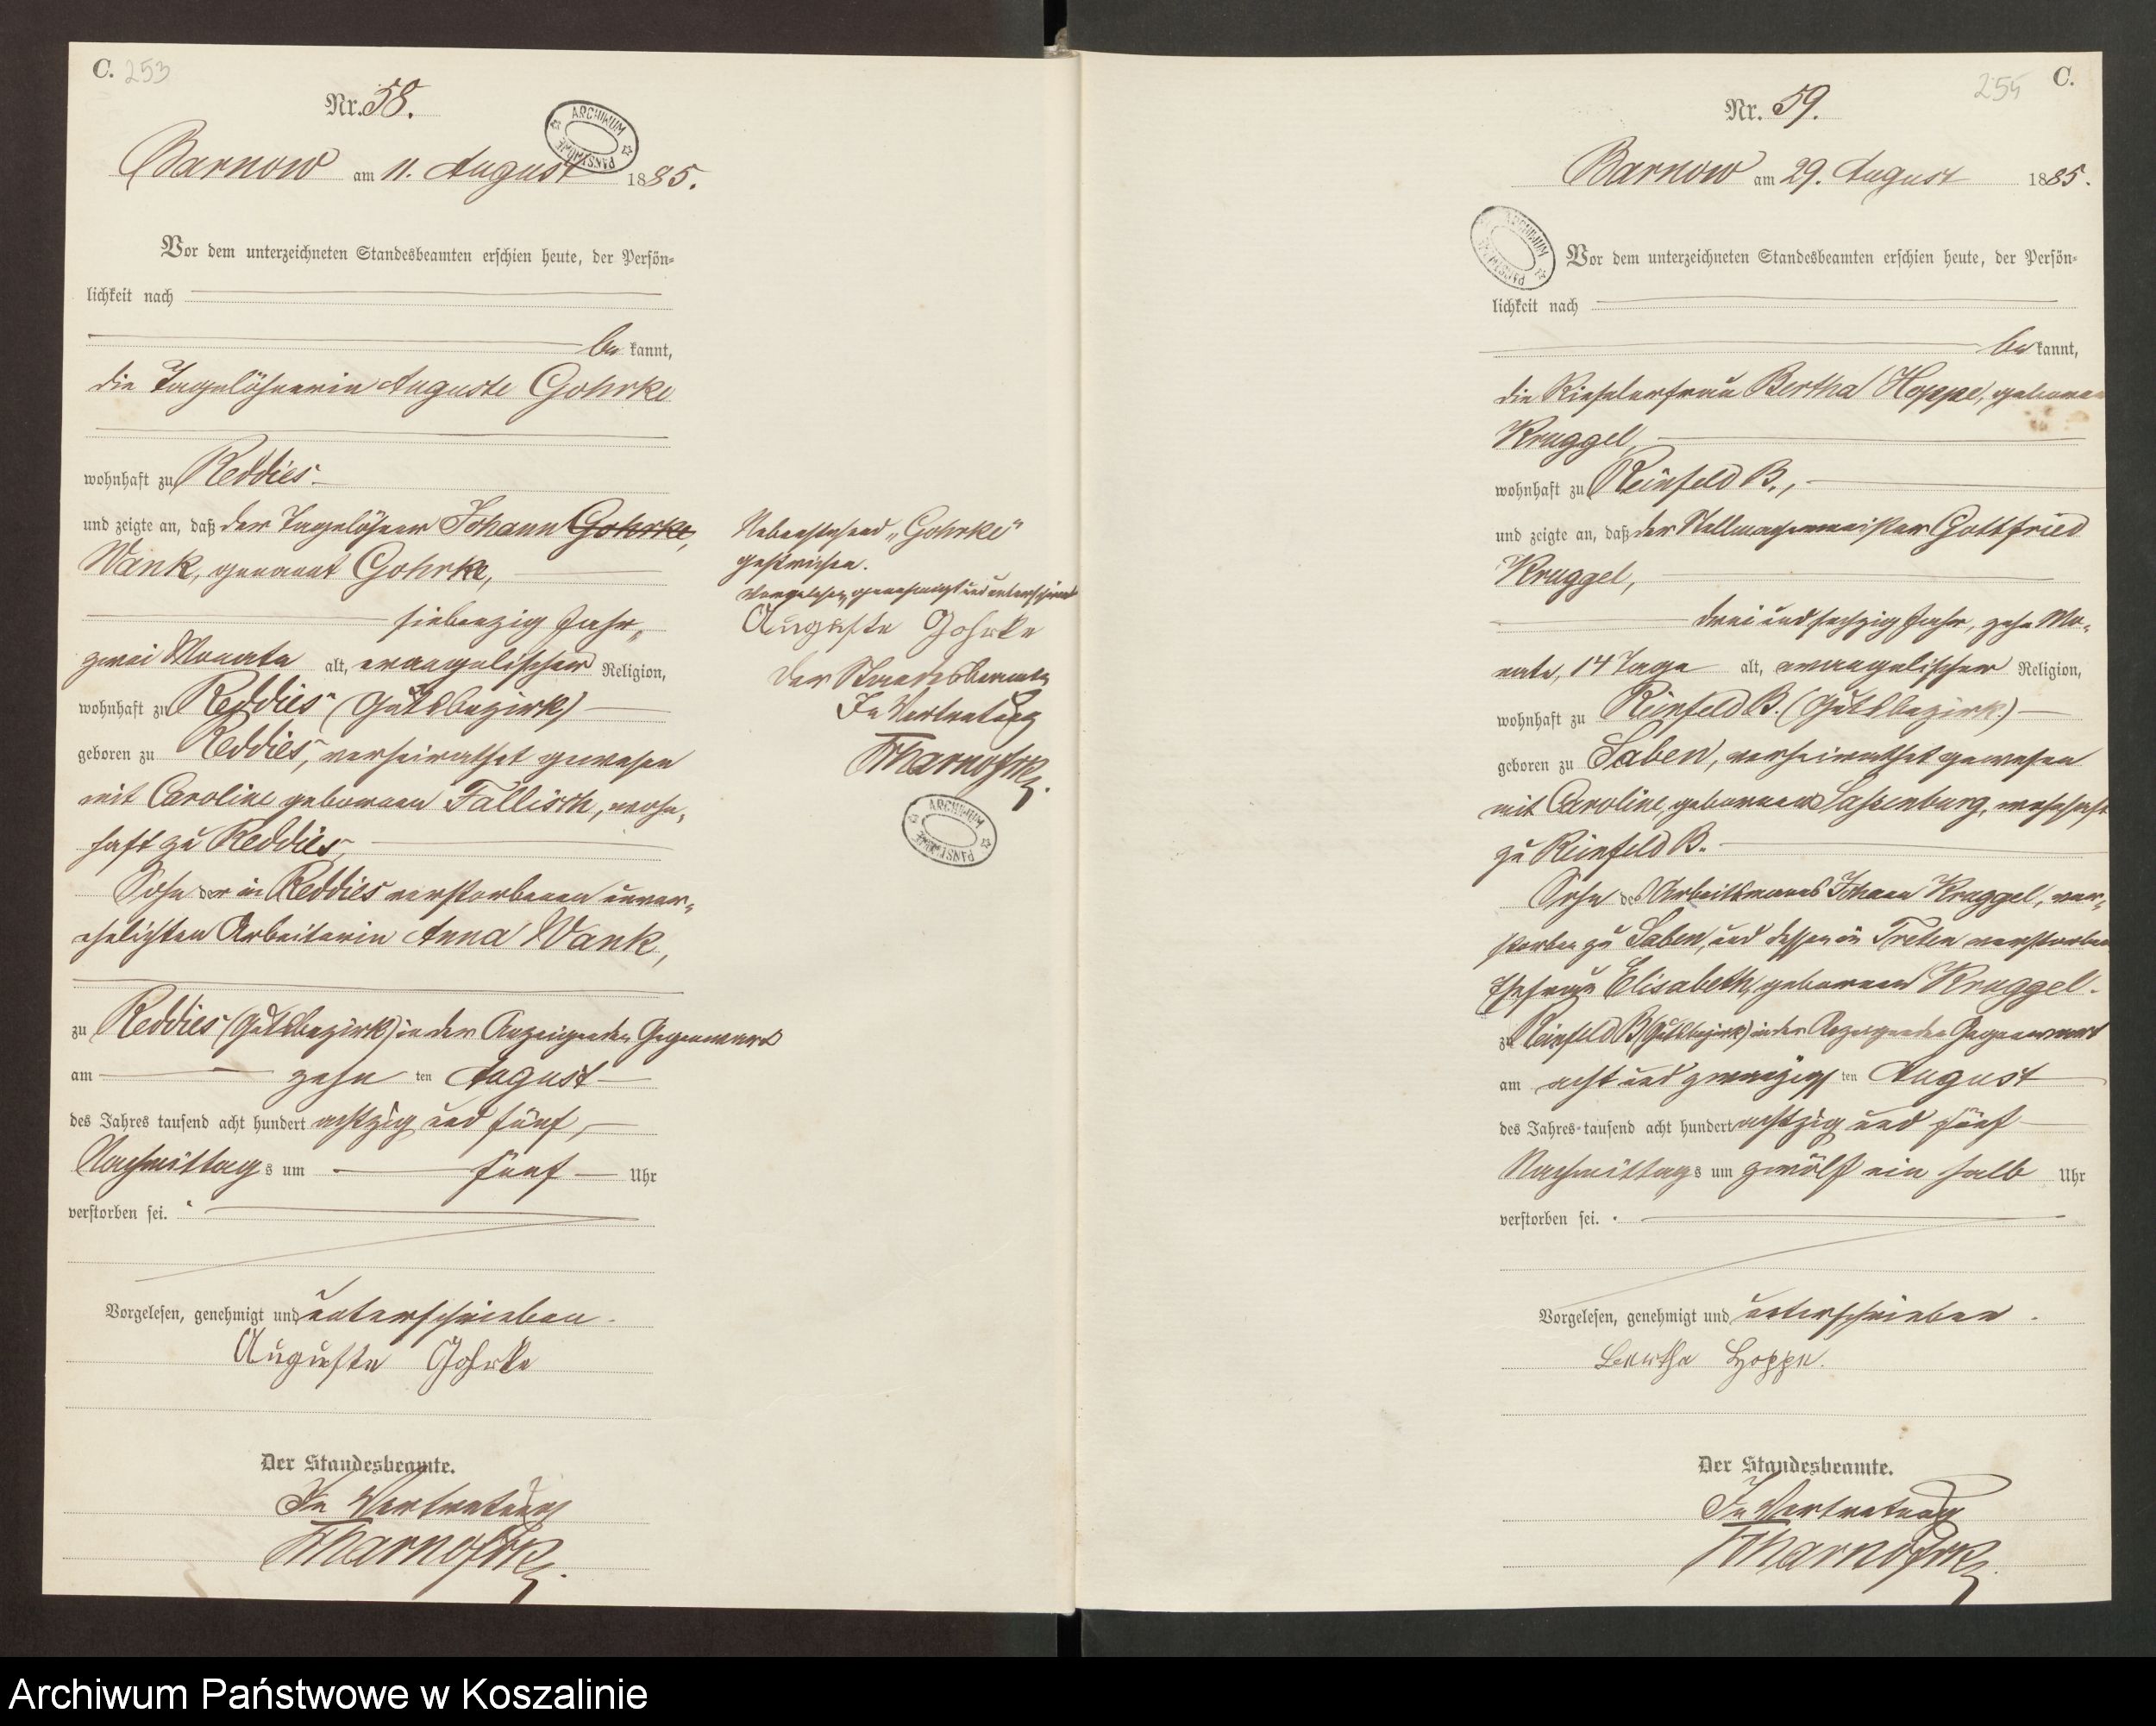 C. 253
Nr. 58.
ARCHIWUM PAŃSTWOWE
Barnow am 11. August 1885.
Vor dem unterzeichneten Standesbeamten erschien heute, der Persön-
lichkeit nach
be kannt,
die Tagelöhnerin Auguste Gohrke
wohnhaft zu Reddies
und zeigte an, daß der Tagelöhner Johann Gohrke,
Wank, genannt Gohrke,
siebenzig Jahr,
zwei Monate alt, evangelischer Religion,
wohnhaft zu Reddies (Gutsbezirk)
geboren zu Reddies, verheirathet gewesen
mit Caroline geborenen Fällisch, wohn-
haft zu Reddies,
Sohn der in Reddies verstorbenen unver-
ehelichten Arbeiterin Anna Wank,
zu Reddies (Gutsbezirk) in der Anzeigenden Gegenwart
am zehn ten August
des Jahres tausend acht hundert achtzig und fünf,
Nachmittags um fünf Uhr
verstorben sei.
Vorgelesen, genehmigt und unterschrieben.
Auguste Gohrke
Der Standesbeamte.
In Vertretung
Nebenstehend „Gohrke“
gestrichen.
Vorgelesen, genehmigt und unterschrieben
Auguste Gohrke
Der Standesbeamte
In Vertretung
ARCHIWUM PAŃSTWOWE
C. 254
Nr. 59.
Barnow am 29. August 1885.
ARCHIWUM PAŃSTWOWE
Vor dem unterzeichneten Standesbeamten erschien heute, der Persön-
lichkeit nach
be kannt,
die Rieselerfrau Bertha Hoppe, geborene
Kruggel,
wohnhaft zu Reinfeld B.,
und zeigte an, daß der Stellmachermeister Gottfried
Kruggel,
drei und sechzig Jahr, zehn Mo-
nate, 14 Tage alt, evangelischer Religion,
wohnhaft zu Reinfeld B. (Gutsbezirk)
geboren zu Saben, verheirathet gewesen
mit Caroline, geborenen Sassenburg, wohnhaft
zu Reinfeld B.
Sohn des Arbeitsmanns Johann Kruggel, ver-
storben zu Saben, und dessen in Treten verstorbenen
Ehefrau Elisabeth, geborenen Kruggel.
zu Reinfeld B (Gutsbezirk) in der Anzeigenden Gegenwart
am acht und zwanzigs ten August
des Jahres tausend acht hundert achtzig und fünf
Nachmittags um zwölf ein halb Uhr
verstorben sei.
Vorgelesen, genehmigt und unterschrieben.
Bertha Hoppe.
Der Standesbeamte.
In Vertretung
Archiwum Państwowe w Koszalinie